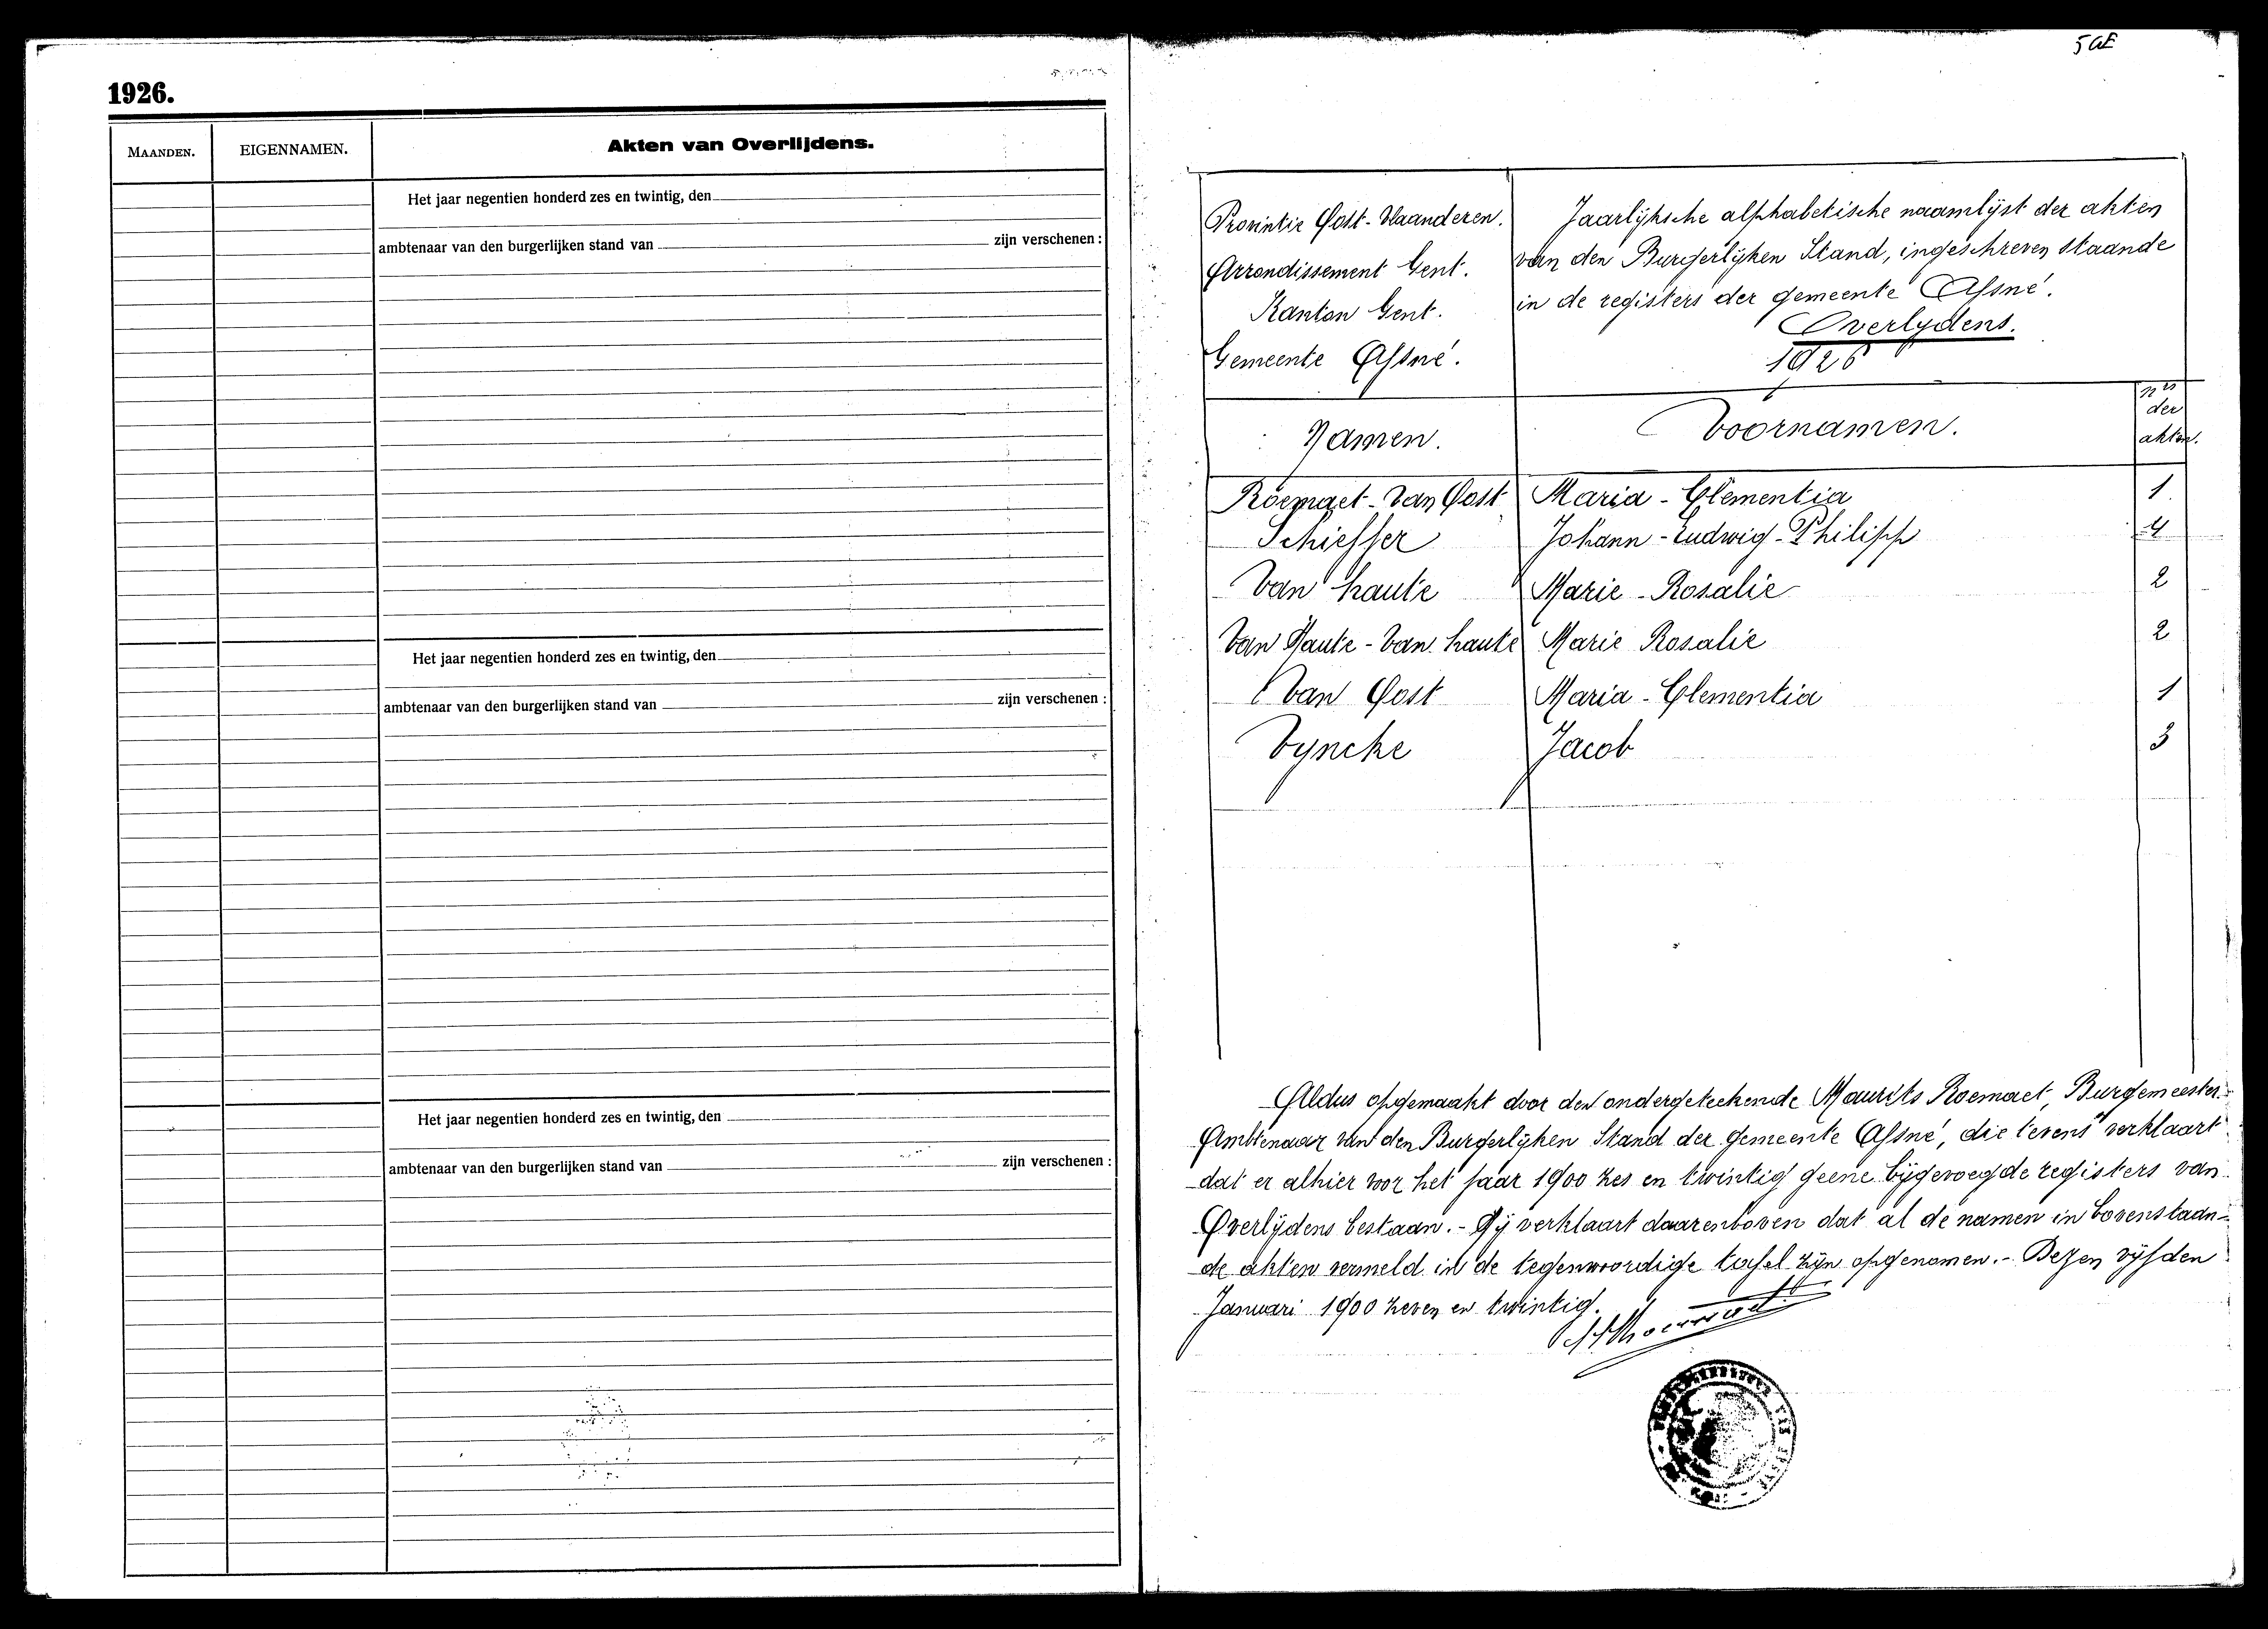 1926.
MAANDEN. EIGENNAMEN. Akten van Overlijdens.
Het jaar negentien honderd zes en twintig, den
ambtenaar van den burgerlijken stand van zijn verschenen :
Het jaar negentien honderd zes en twintig, den
ambtenaar van den burgerlijken stand van zijn verschenen :
Het jaar negentien honderd zes en twintig, den
ambtenaar van den burgerlijken stand van zijn verschenen :
Provintie Oost-Vlaanderen.
Arrondissement Gent.
Kanton Gent.
Gemeente Afsné.
Jaarlijksche alphabetische naamlijst der akten
van den Burgerlijken Stand, ingeschreven staande
in de registers der gemeente Afsné.
Overlydens.
1926
Namen. Voornamen. nrs der akten.
Roemaet-Van Oost Maria-Clementia 1.
Schieffer Johann-Ludwig-Philipp 4
Van haute Marie-Rosalie 2
Van Haute-Van haute Marie Rosalie 2
Van Oost Maria-Clementia 1
Vyncke Jacob 3
Aldus opgemaakt door den ondergeteekende Maurits Roemaet, Burgemeester.
Ambtenaar van den Burgerlijken Stand der gemeente Afsné, die tevens verklaart
dat er alhier voor het jaar 1900 zes en twintig geene bijgevoegde registers van
Overlijdens bestaan.- Hij verklaart daarenboven dat al de namen in bovenstaan-
de akten vermeld in de tegenwoordige tafel zijn opgenomen.- Dezen vijfden
Januari 1900 zeven en twintig.